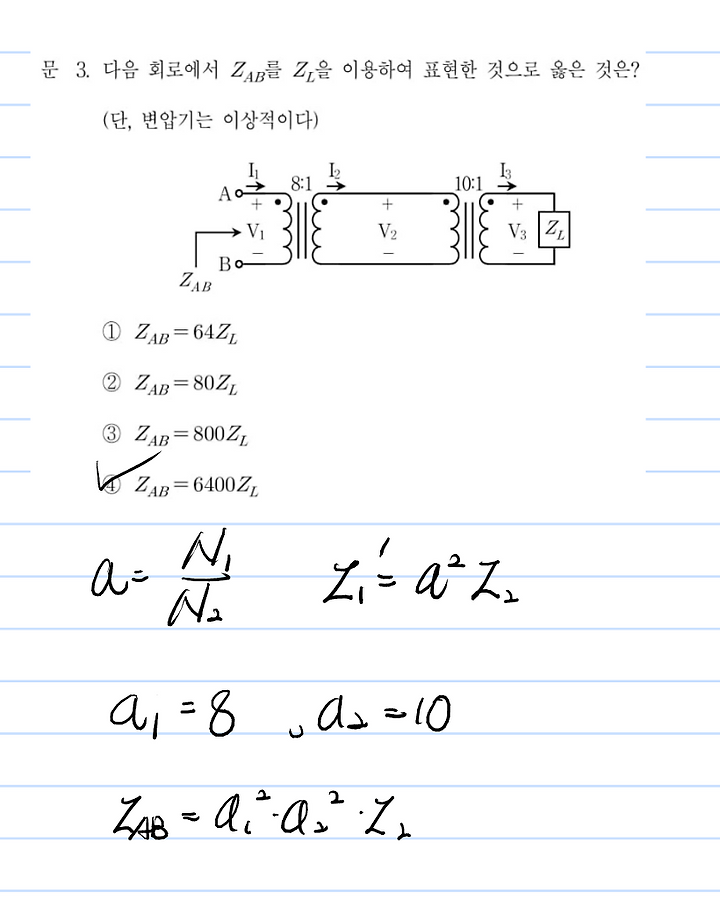 문 3. 다음 회로에서 Z_AB를 Z_L을 이용하여 표현한 것으로 옳은 것은?
(단, 변압기는 이상적이다)
I₁ 8:1 I₂ 10:1 I₃
A + + +
V₁ V₂ V₃ Z_L
B − − −
Z_AB
① Z_AB = 64Z_L
② Z_AB = 80Z_L
③ Z_AB = 800Z_L
④ Z_AB = 6400Z_L
a = N₁/N₂ Z₁' = a² Z₂
a₁ = 8 , a₂ = 10
Z_AB = a₁² · a₂² · Z₂